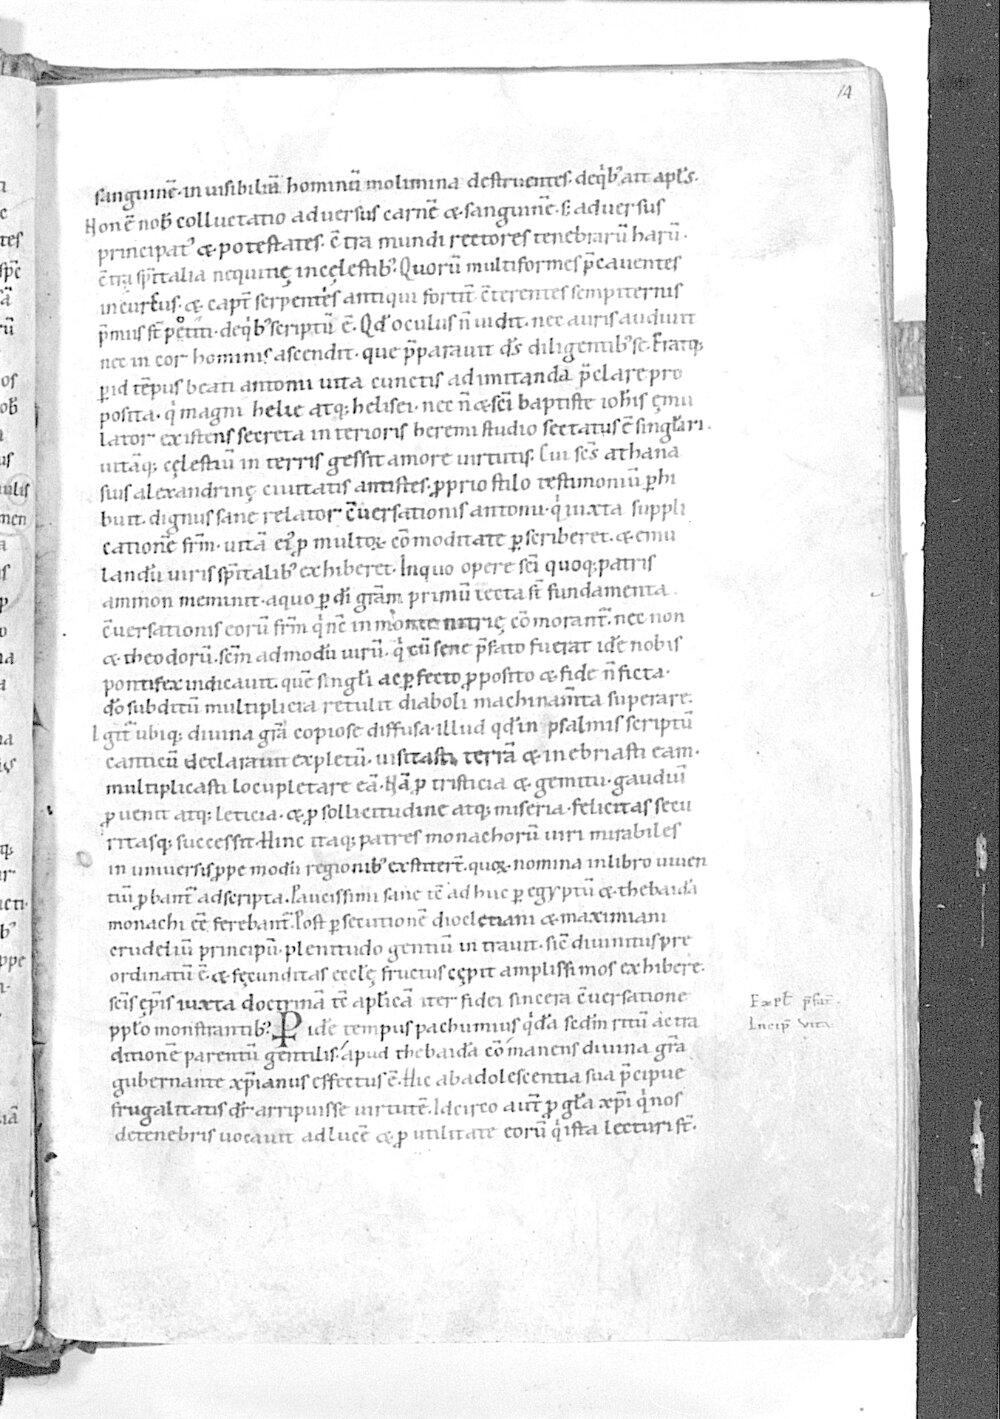 14
sanguinē· in uisibiliū hominū molimina destruentes· deq̇b; ait apl̄s·
Non ē nob̄ colluctatio aduersus carnē & sanguinē· s; aduersus
principat' & potestates· c̄tra mundi rectores tenebrarū harū·
c̄tra sp̄italia nequitię in cęlestib;· Quorū multiformes p̄cauentes
incursus· & capt̄ serpentis antiqui fortit̄ c̄terentes sempiternis
p̄miis st̄ potiti· deq̇b; scriptū ē· Qđ oculus n̄ uidit· nec auris audiuit
nec in cor hominis ascendit· que p̄parauit dr̄s diligentib; se· Eratq;
ꝑ id tēpus beati antonii uita cunctis ad imitandā p̄clare pro
posita· q̇ magni helie atq; helisei· nec n̄ & sc̄i baptiste ioh̄is ęmu
lator existens secreta interioris heremi studio sectatus ē singl̄ari·
uitāq; cęlestiū in terris gessit amore uirtutis· Cui sc̄s athana
sius alexandrinę ciuitatis antistes· ꝓprio stilo testimoniū ꝑhi
buit· dignus sane relator c̄uersationis antonii· q̇ iuxta suppli
cationē fr̄m· uitā ei' ꝓ multoꝝ cōmoditate ꝑscriberet· & emu
landū uiris sp̄italib; exhiberet· In quo opere sc̄i quoq; patris
ammon meminit· a quo ꝑ dī gr̄am primū iecta st̄ fundamenta
c̄uersationis eorū fr̄m q̇ nc̄ in monte nitrię cōmorant̄· nec non
& theodorū· sc̄m admodū uirū· q̇ cū sene p̄fato fuerat idē nobis
pontifex indicauit· quē singl̄i ac ꝑfecto ꝓposito & fide n̄ ficta·
dō subditū multiplicia retulit diaboli machinam̄ta superare·
Igit̄ ubiq; diuina gr̄a copiose diffusa· illud qđ in psalmis scriptū
canticū declarauit expletū· uisitasti terrā & inebriasti eam·
multiplicasti locupletare eā· Nā ꝓ tristicia & gemitu· gaudiū
ꝓuenit atq; leticia· & ꝓ sollicitudine atq; miseria· felicitas secu
ritasq; successit· Hinc itaq; patres monachorū uiri mirabiles
in uniuersis ppe modū regionib; exstitert̄· quoꝝ nomina in libro uiuen
tiū ꝓbant̄ adscripta· Paucissimi sane tc̄ adhuc ꝑ egyptū & thebaidā
monachi ēē ferebant̄· Post ꝑsecutionē diocletiani & maximiani
crudeliū principū· plenitudo gentiū intrauit· sic̄ diuinitus pre
ordinatū ē· & fęcunditas eccl̄ę fructus cępit amplissimos exhibere·
sc̄is ep̄is iuxta doctrinā tc̄ ap̄licā iter fidei sincera c̄uersatione
ppl̄o monstrantib;· Ꝑ idē tempus pachumius q̇dā secdm ritū ac tra
ditionē parentū gentilis· apud thebaidā cōmanens diuina gr̄a
gubernante xp̄ianus effectus ē· Hic ab adolescentia sua p̄cipue
frugalitatis dr̄ arripuisse uirtutē· Idcirco aut̄ ꝓ gl̄a xp̄i q̇ nos
de tenebris uocauit ad lucē & ꝓ utilitate eorū q̇ ista lecturi st̄·
Expl̄ p̄fat̄·
Incip̄ vita·